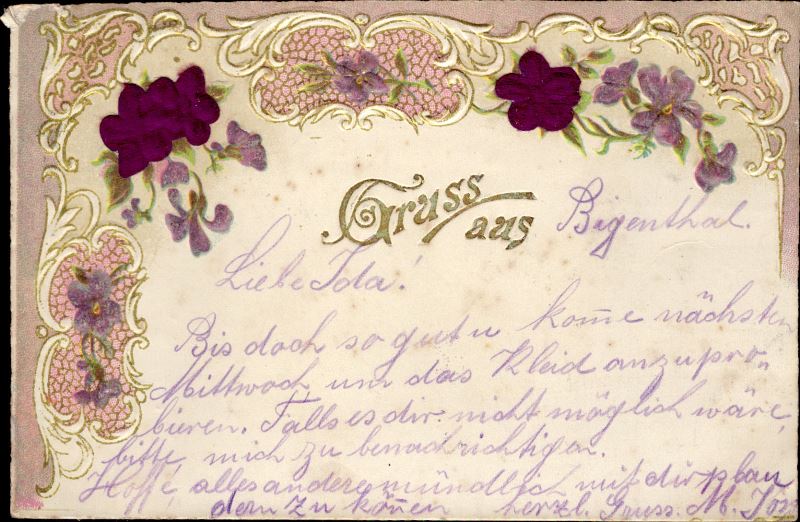 Gruss
aus Bigenthal.
Liebe Ida!
Bis doch so gut u kom̅e nächsten
Mittwoch um das Kleid anzupro-
bieren. Falls es dir nicht möglich wäre,
bitte mich zu benachrichtigen.
Hoffe, alles andere mündlich mit dir plau
dern zu kön̅en herzl. Gruss. M.